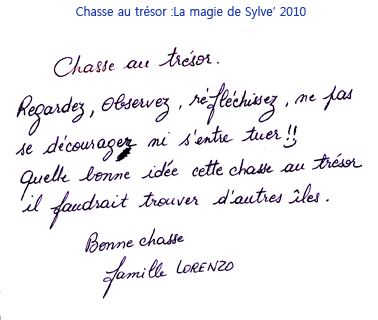 Chasse au trésor :La magie de Sylve' 2010
Chasse au trésor.
Regardez, Observez, réfléchissez, ne pas
se décourager ni s'entre tuer!!
Quelle bonne idée cette chasse au trésor
il faudrait trouver d'autres îles.
Bonne chasse
famille LORENZO